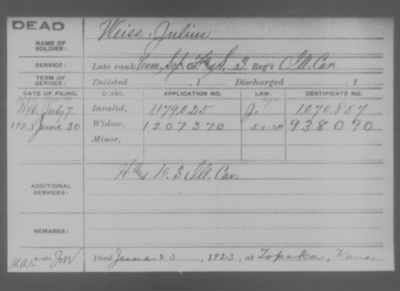 DEAD
Weiss, Julius
NAME OF SOLDIER:
SERVICE: Late rank Com. Sgt. F & S, 3 Reg't Ill. Cav.
TERM OF SERVICE: Enlisted , 1 Discharged , 1
DATE OF FILING. CLASS. APPLICATION NO. LAW. CERTIFICATE NO.
July 7 Invalid, 1179.025 J. 1.070.857
1923 June 30 Widow, 1207370 938090
Minor,
D. 3 Ill. Cav.
ADDITIONAL SERVICES:
REMARKS:
Died , 1923, at Topeka, Kans.